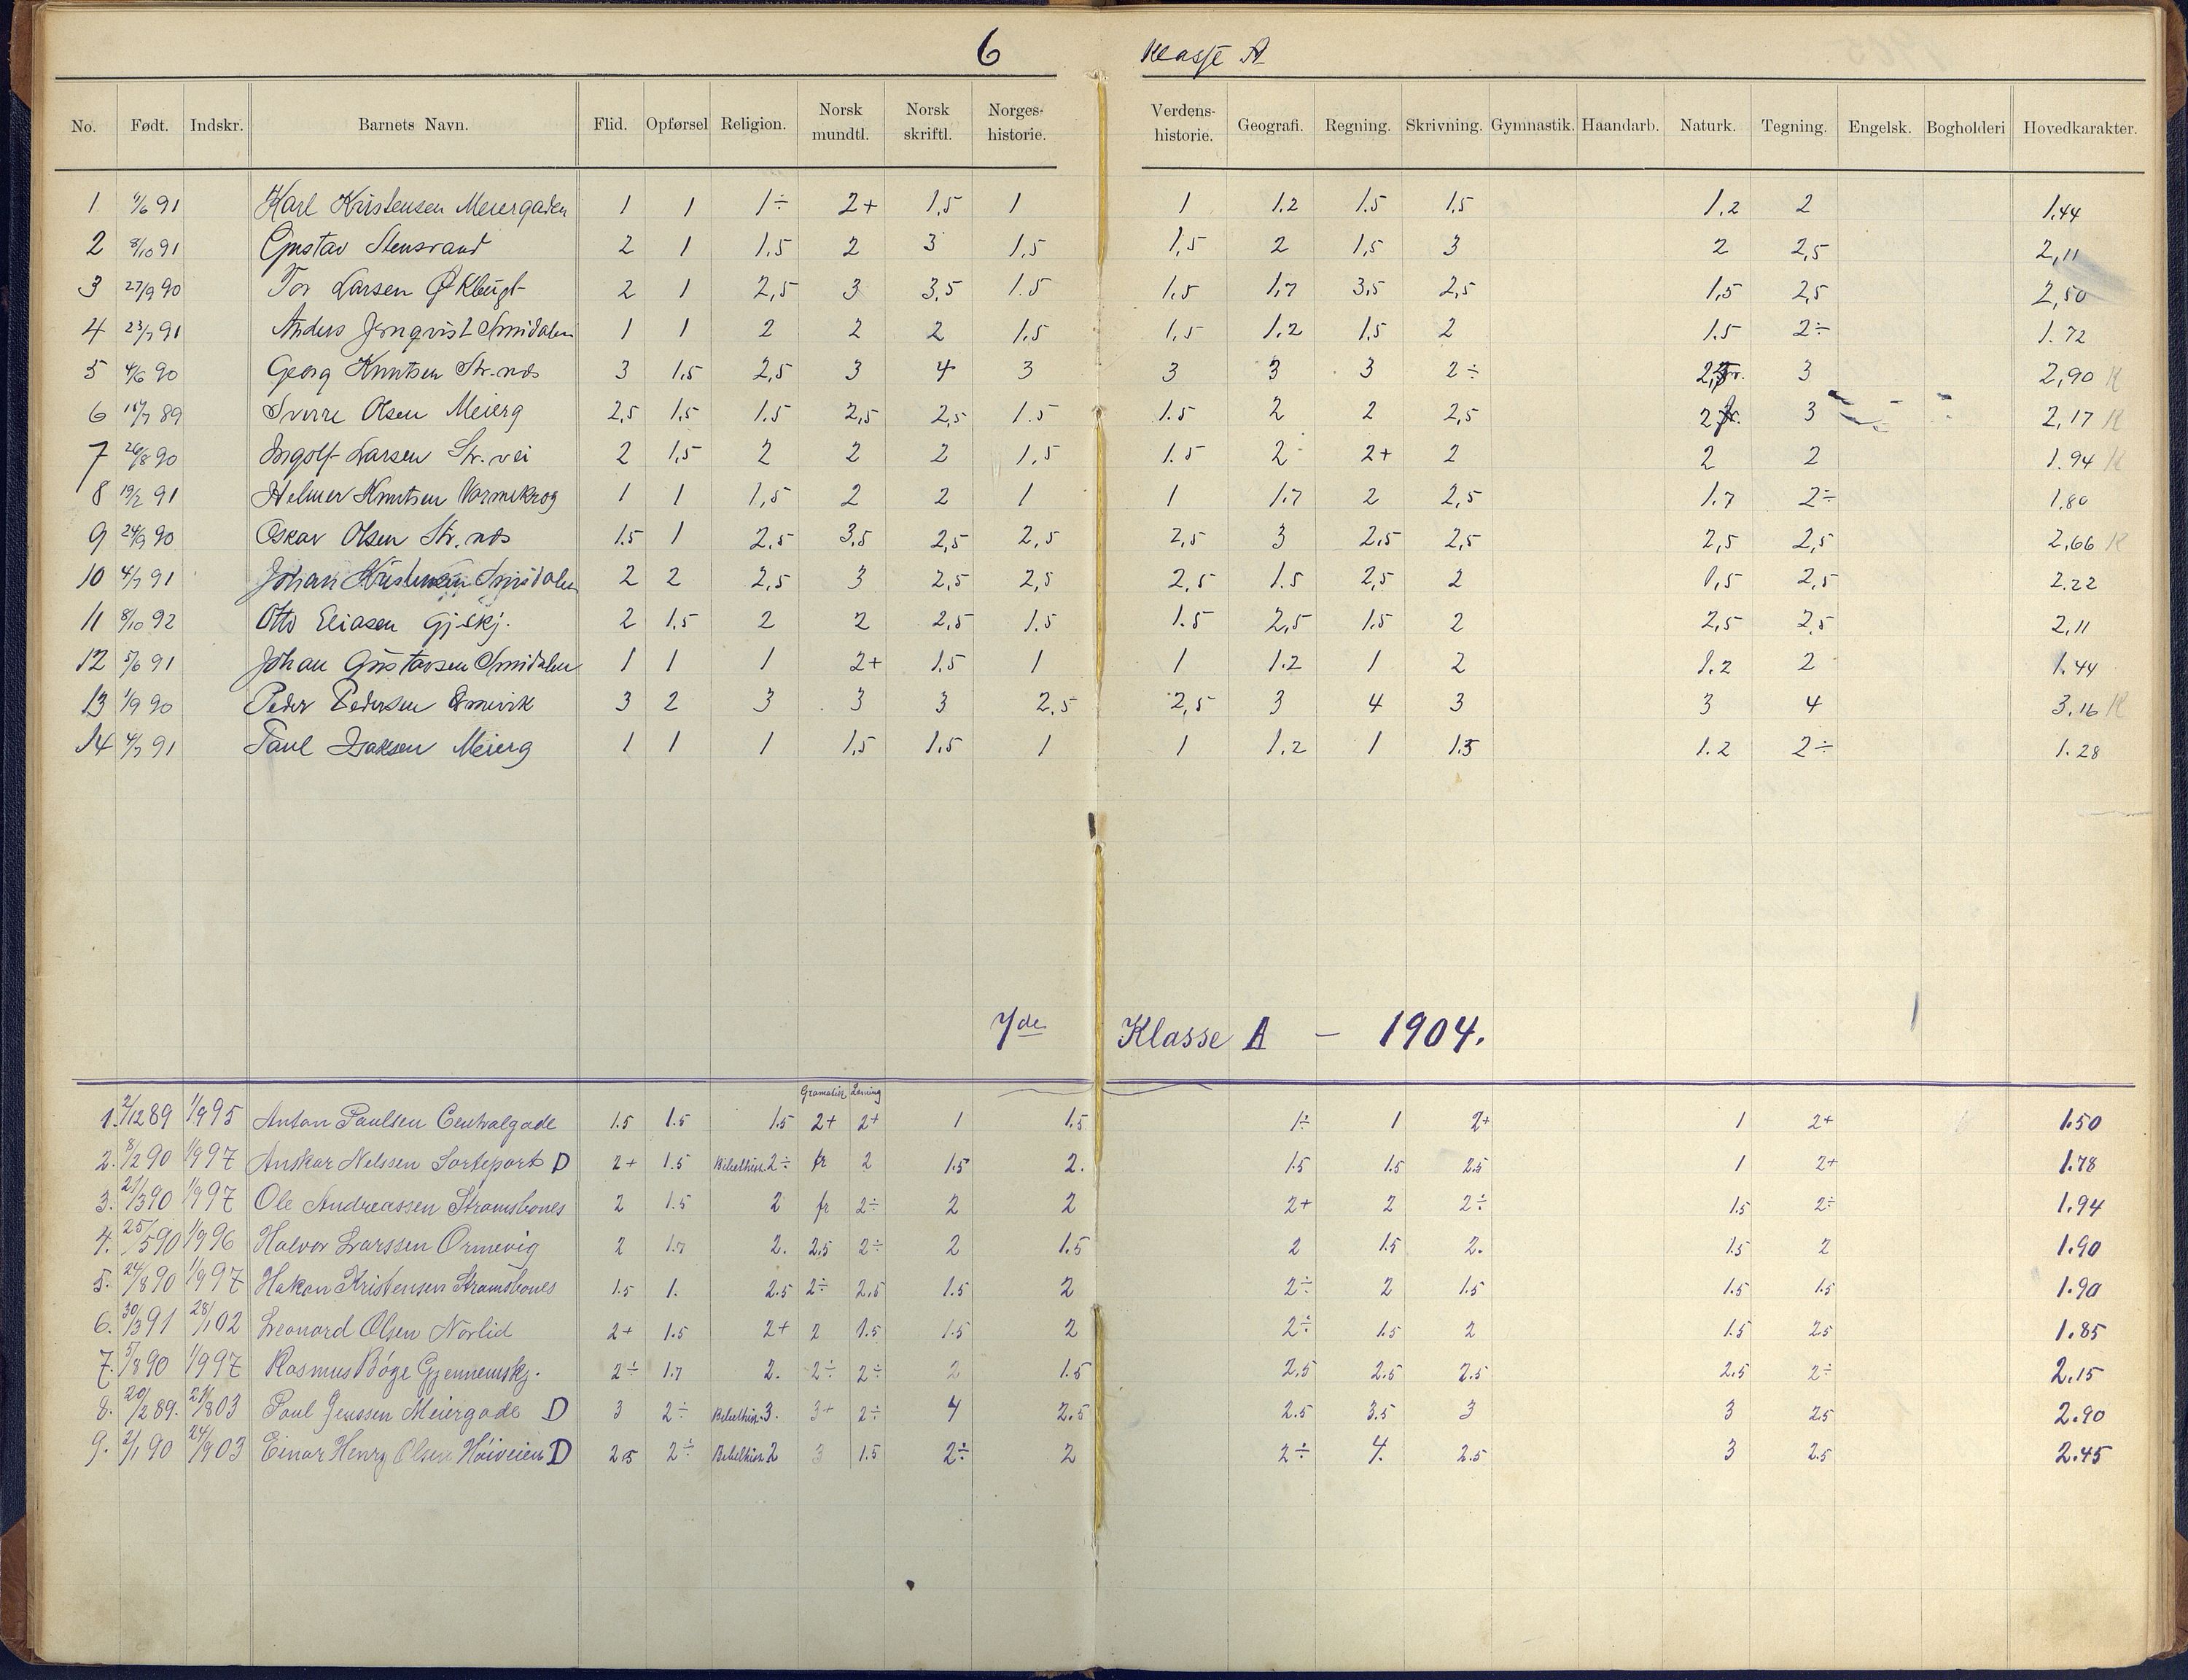 6 Klasse A
No. Født. Indskr. Barnets Navn. Flid. Opførsel Religion. Norsk mundtl. Norsk skriftl. Norges-historie. Verdens-historie. Geografi. Regning. Skrivning. Gymnastik. Haandarb. Naturk. Tegning. Engelsk. Bogholderi Hovedkarakter.
1 4/6 91 Karl Kristensen Meiergaden 1 1 1÷ 2+ 1,5 1 1 1.2 1.5 1,5 1.2 2 1.44
2 8/10 91 Gustav Stensvand 2 1 1,5 2 3 1,5 1,5 2 1,5 3 2 2,5 2,11
3 27/9 90 Tor Larsen Ø Kbugt 2 1 2,5 3 3,5 1.5 1.5 1,7 3,5 2,5 1,5 2,5 2,50
4 23/7 91 Anders Jernqvist Smidalen 1 1 2 2 2 1,5 1,5 1.2 1,5 2 1.5 2÷ 1.72
5 4/6 90 Georg Knutsen Str.nds 3 1.5 2,5 3 4 3 3 3 3 2÷ 3 2,90 K
6 15/7 89 Sverre Olsen Meierg 2,5 1,5 1.5 2,5 2,5 1.5 1.5 2 2 2,5 2 3 2,17 K
7 26/8 90 Ingolf Larsen Str.vei 2 1,5 2 2 2 1,5 1.5 2 2+ 2 2 2 1.94 K
8 19/2 91 Helmer Knutsen Varmekrog 1 1 1,5 2 2 1 1 1.7 2 2,5 1.7 2÷ 1.80
9 24/9 90 Oskar Olsen Str.nds 1.5 1 2,5 3,5 2,5 2,5 2,5 3 2,5 2,5 2,5 2,5 2,66 K
10 4/7 91 Johan Kristensen Smidalen 2 2 2,5 3 2,5 2,5 2,5 1.5 2,5 2 1,5 2,5 2.22
11 8/10 92 Otto Eliasen Gj skj. 2 1.5 2 2 2,5 1.5 1.5 2,5 1.5 2 2,5 2,5 2,11
12 5/6 91 Johan Gustavsen Smidalen 1 1 1 2+ 1.5 1 1 1.2 1 2 1.2 2 1.44
13 1/9 90 Peder Pedersen Ormevik 3 2 3 3 3 2,5 2,5 3 4 3 3 4 3.16 K
14 4/7 91 Paul Isaksen Meierg 1 1 1 1,5 1.5 1 1 1.2 1 1.5 1.2 2÷ 1.28
7de Klasse A - 1904.
Gramatik Læsning
1. 2/12 89 1/9 95 Anton Paulsen Centralgade 1.5 1.5 1.5 2+ 2+ 1 1.5 1÷ 1 2+ 1 2+ 1.50
2. 8/2 90 1/9 97 Anskar Nelssen Sorteport D 2+ 1.5 Bibelhist. 2÷ fr 2 1.5 2. 1.5 1.5 2.5 1 2+ 1.78
3. 21/3 90 1/9 97 Ole Andreassen Strømsbones 2 1.5 2 fr 2÷ 2 2 2+ 2 2÷ 1.5 2÷ 1.94
4. 25/5 90 1/9 96 Halvor Larssen Ormevig 2 1.7 2. 2.5 2÷ 2 1.5 2 1.5 2. 1.5 2 1.90
5. 24/8 90 1/9 97 Hakon Kristensen Strømsbones 1.5 1. 2.5 2÷ 2.5 1.5 2 2÷ 2 1.5 1.5 1.5 1.90
6. 30/3 91 28/1 02 Leonard Olsen Norlid 2+ 1.5 2+ 2 1.5 1.5 2 2÷ 1.5 2 1.5 2.5 1.85
7. 5/8 90 1/9 97 Rasmus Bóge Gjennemskj. 2÷ 1.7 2. 2÷ 2÷ 2 1.5 2.5 2.5 2.5 2.5 2÷ 2.15
8. 20/2 89. 21/8 03 Paul Jenssen Meiergade D 3 2÷ Bibelhist. 3. 3+ 2÷ 4 2.5 2.5 3.5 3 3 2.5 2.90
9. 2/1 90 24/9 03 Einar Henry Olsen Höiveien D 2.5 2÷ Bibelhist 2 3 1.5 2÷ 2 2÷ 4. 2.5 3 2.5 2.45